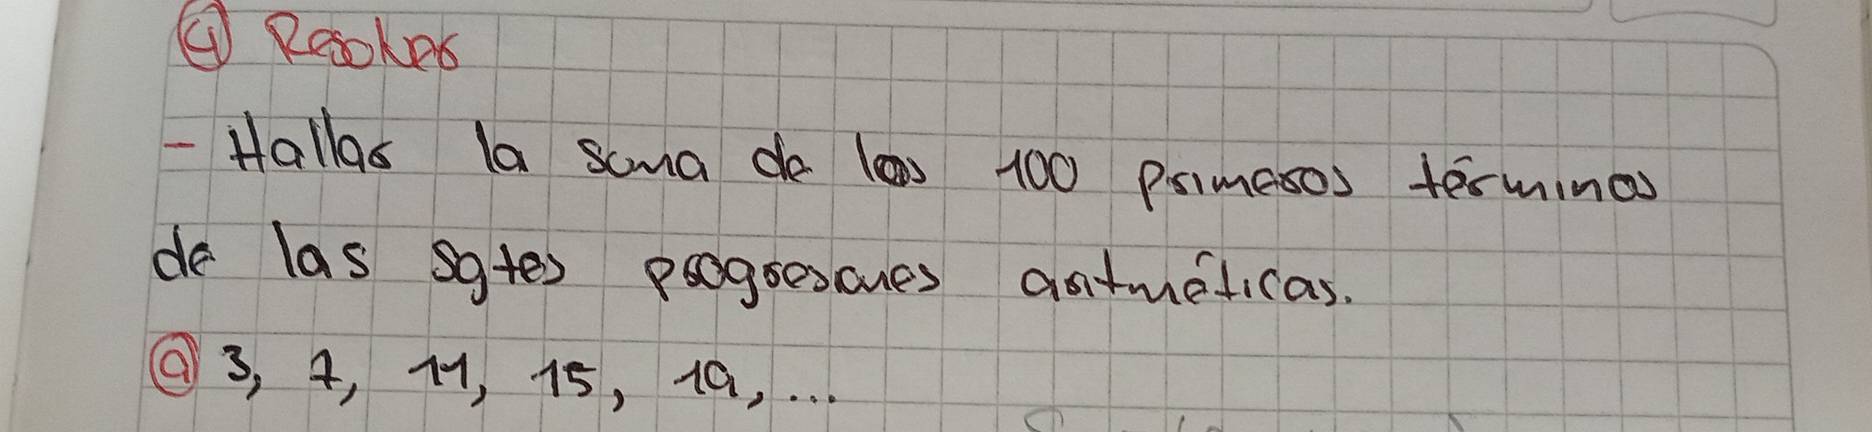 ④ Resolver
- Hallar la suma de los 100 primeros términos
de las sgtes progresiones aritméticas.
ⓐ 3, 7, 11, 15, 19, ...